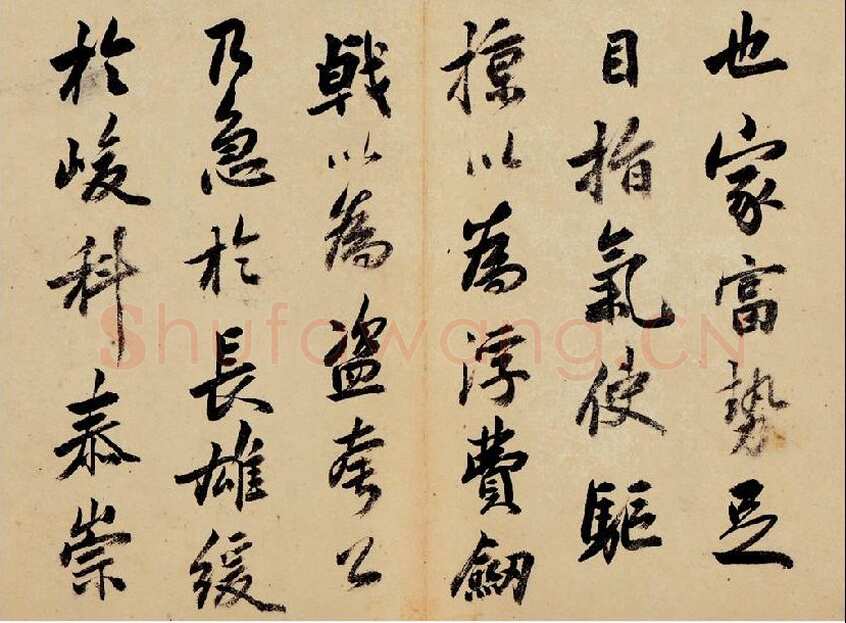 也家富勢足
目指氣使驅
掠以為浮費劒
戟以為盗夸公
乃急於長雄緩
於峻科恭崇
Shufawang.CN